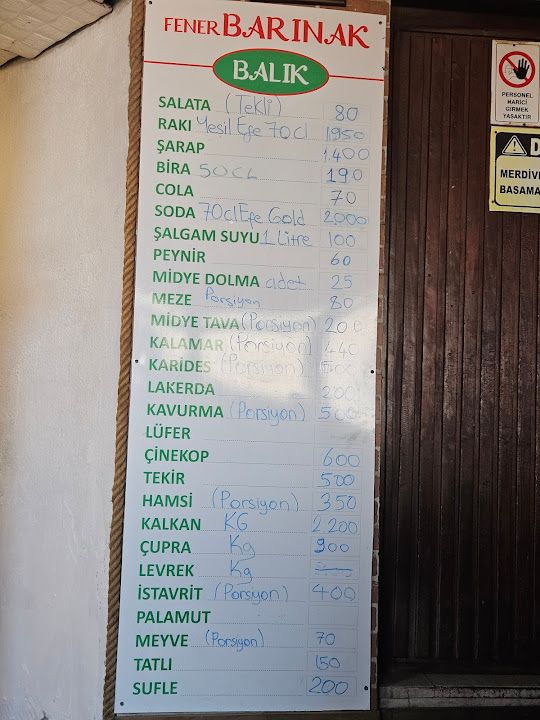 FENER BARINAK
BALIK
SALATA (Tekli) 80
RAKI Yesil Efe 70cl 1950
ŞARAP 1.400
BİRA 50CL 190
COLA 70
SODA 70cl Efe Gold 2000
ŞALGAM SUYU 1 Litre 100
PEYNİR 60
MİDYE DOLMA adet 25
MEZE Porsiyon 80
MİDYE TAVA (Porsiyon) 200
KALAMAR (Porsiyon) 440
KARİDES (Porsiyon)
LAKERDA 200
KAVURMA (Porsiyon) 500
LÜFER
ÇİNEKOP 600
TEKİR 500
HAMSİ (Porsiyon) 350
KALKAN KG 2.200
ÇUPRA Kg 900
LEVREK Kg
İSTAVRİT (Porsiyon) 400
PALAMUT
MEYVE (Porsiyon) 70
TATLI 150
SUFLE 200
PERSONEL
HARİCİ
GİRMEK
YASAKTIR
MERDİV
BASAMA